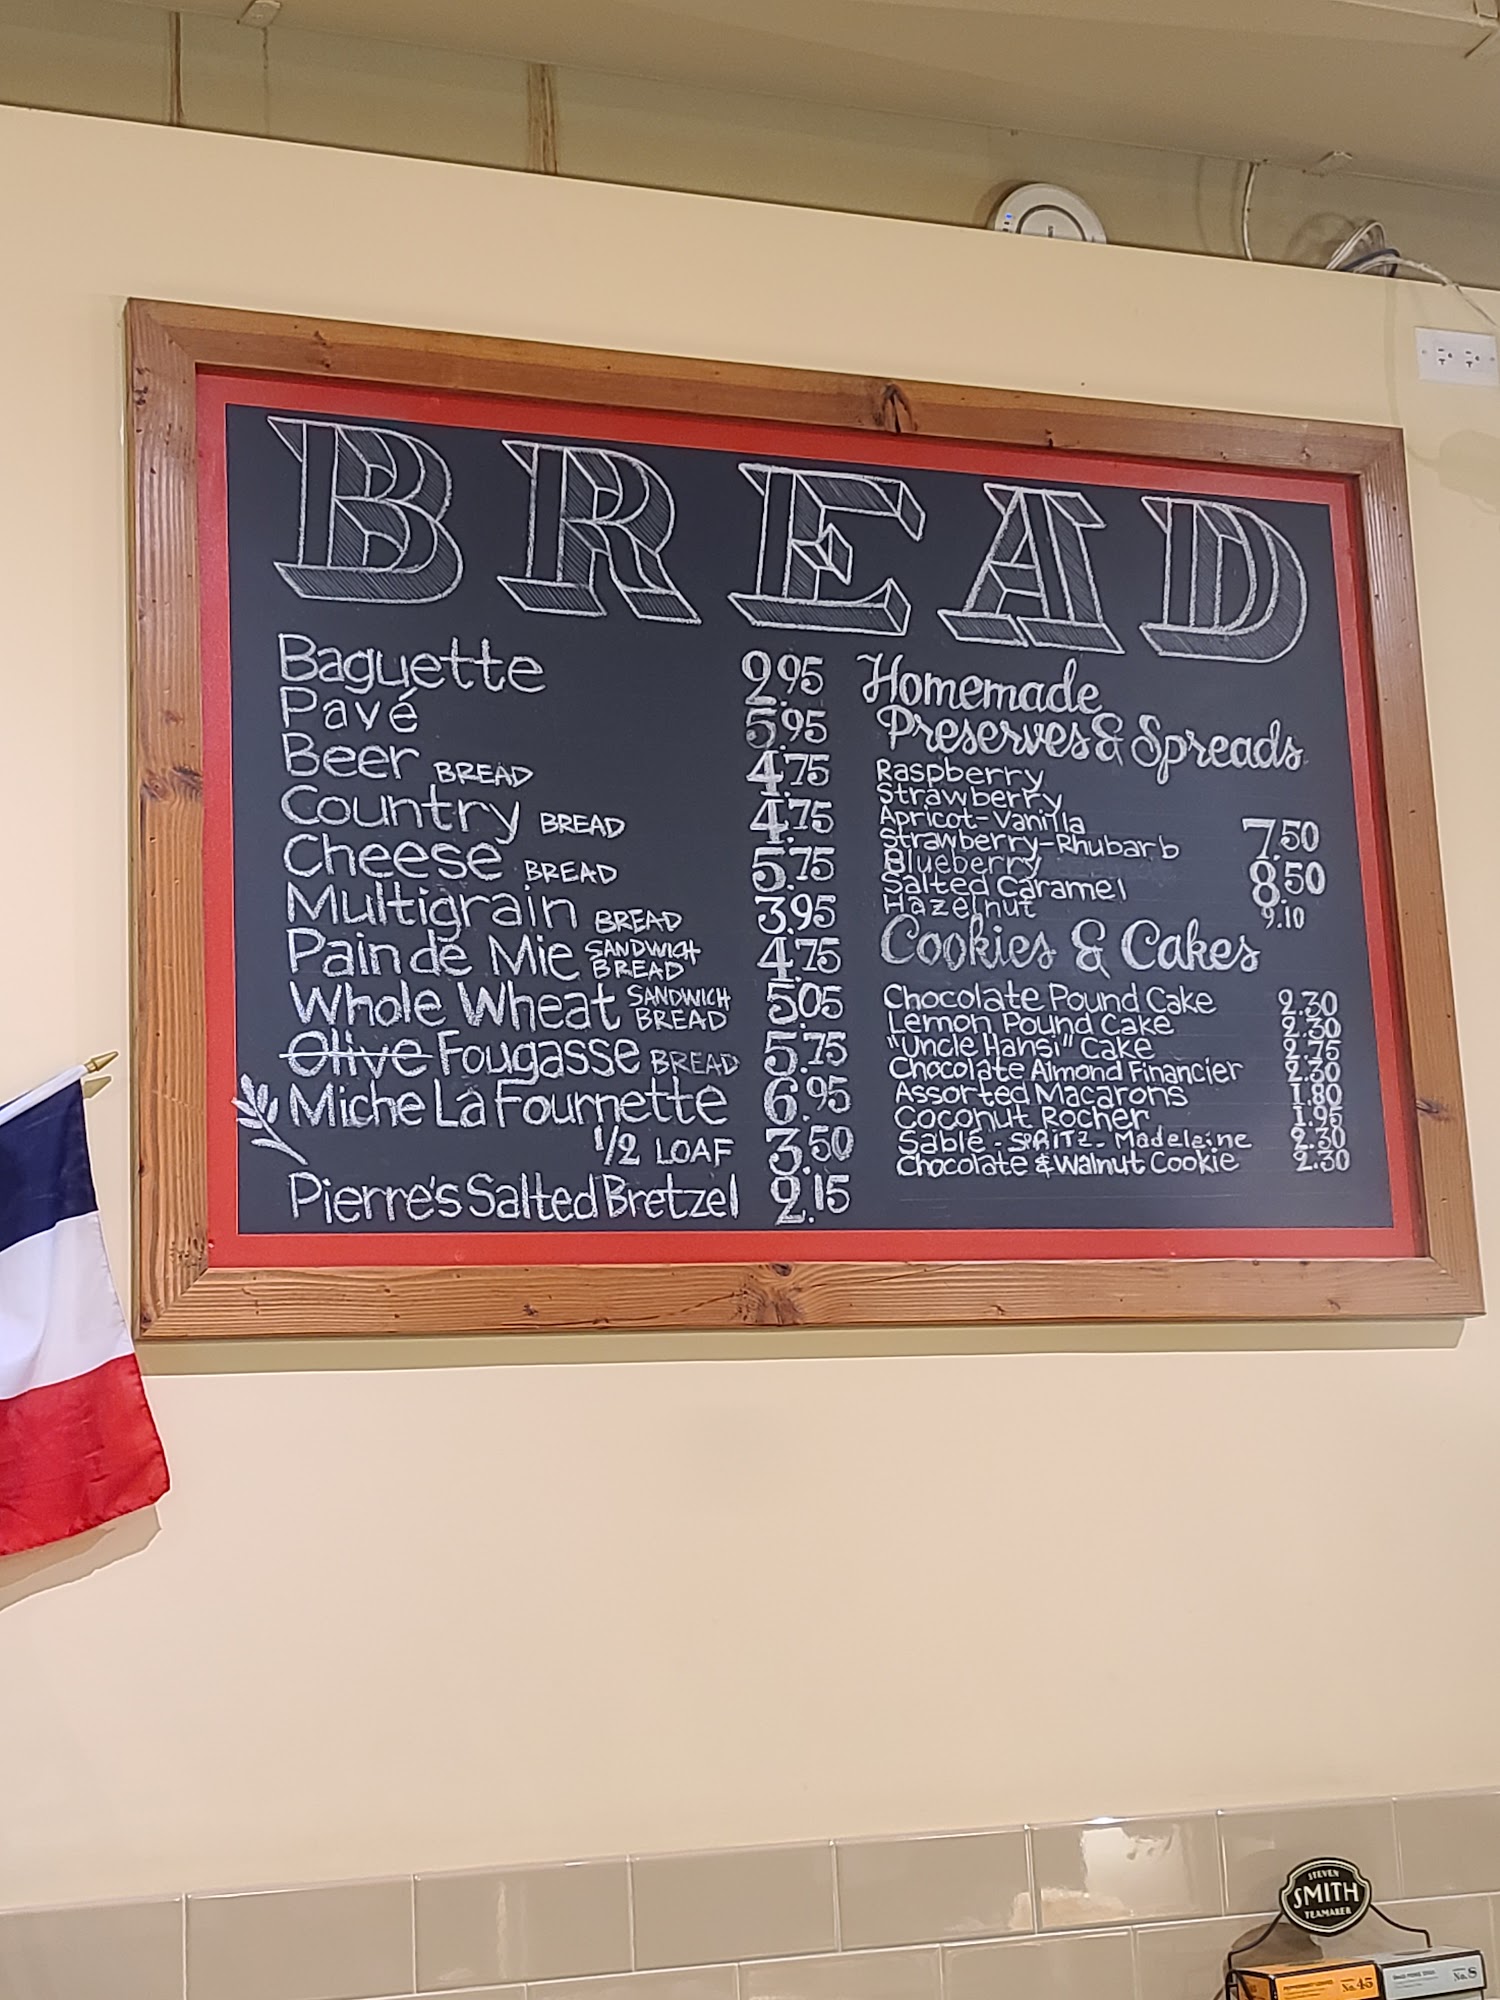 BREAD
Baguette 2.95
Pavé 5.95
Beer BREAD 4.75
Country BREAD 4.75
Cheese BREAD 5.75
Multigrain BREAD 3.95
Pain de Mie SANDWICH BREAD 4.75
Whole Wheat SANDWICH BREAD 5.05
Olive Fougasse BREAD 5.75
Miche La Fournette 6.95
1/2 LOAF 3.50
Pierre's Salted Bretzel 2.15
Homemade
Preserves & Spreads
Raspberry
Strawberry
Apricot-Vanilla
Strawberry-Rhubarb 7.50
Blueberry
Salted Caramel 8.50
Hazelnut 9.10
Cookies & Cakes
Chocolate Pound Cake 2.30
Lemon Pound Cake 2.30
"Uncle Hansi" Cake 2.75
Chocolate Almond Financier 2.30
Assorted Macarons 1.80
Coconut Rocher 1.95
Sable - SPRITZ - Madeleine 2.30
Chocolate & Walnut Cookie 2.30
STEVEN
SMITH
TEAMAKER
No. 45
No. 8